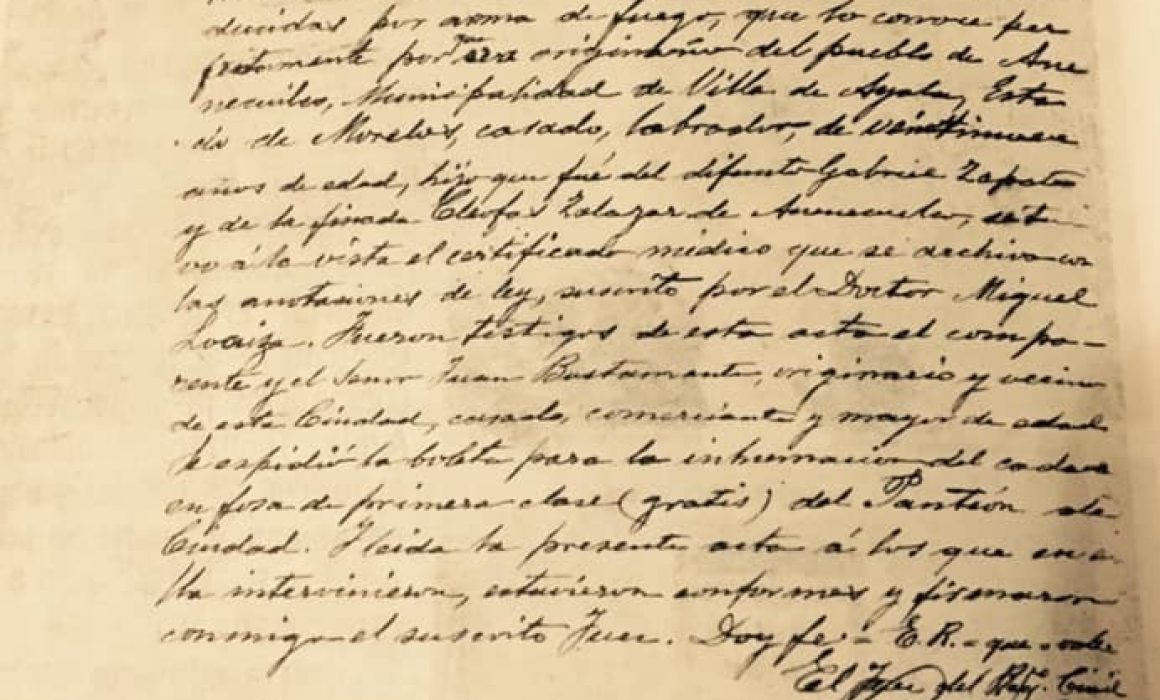 ducidas por arma de fuego, que lo conoce per
fectamente por que era originario del pueblo de Ane
necuilco, Municipalidad de Villa de Ayala, Esta
do de Morelos, casado, labrador, de veintinueve
años de edad, hijo que fué del difunto Gabriel Zapata
y de la finada Cleofas Zalazar de Anenecuilco, se tu
vo á la vista el certificado médico que se archiva con
las anotasiones de ley, suscrito por el Doctor Miguel
Loaiza. Fueron testigos de esta acta el compa-
rente y el Senor Juan Bustamante, originario y vecino
de esta Ciudad, casado, comerciante y mayor de edad
Se espidió la boleta para la inhumacion del cadaver
en fosa de primera clase (gratis) del Panteón de la
Ciudad. I leida la presente acta á los que en e
lla intervinieron, estuvieron conformes y firmaron
conmigo el suscrito Juez. Doy fe = E.R. = que = vale
El Juez del Civil